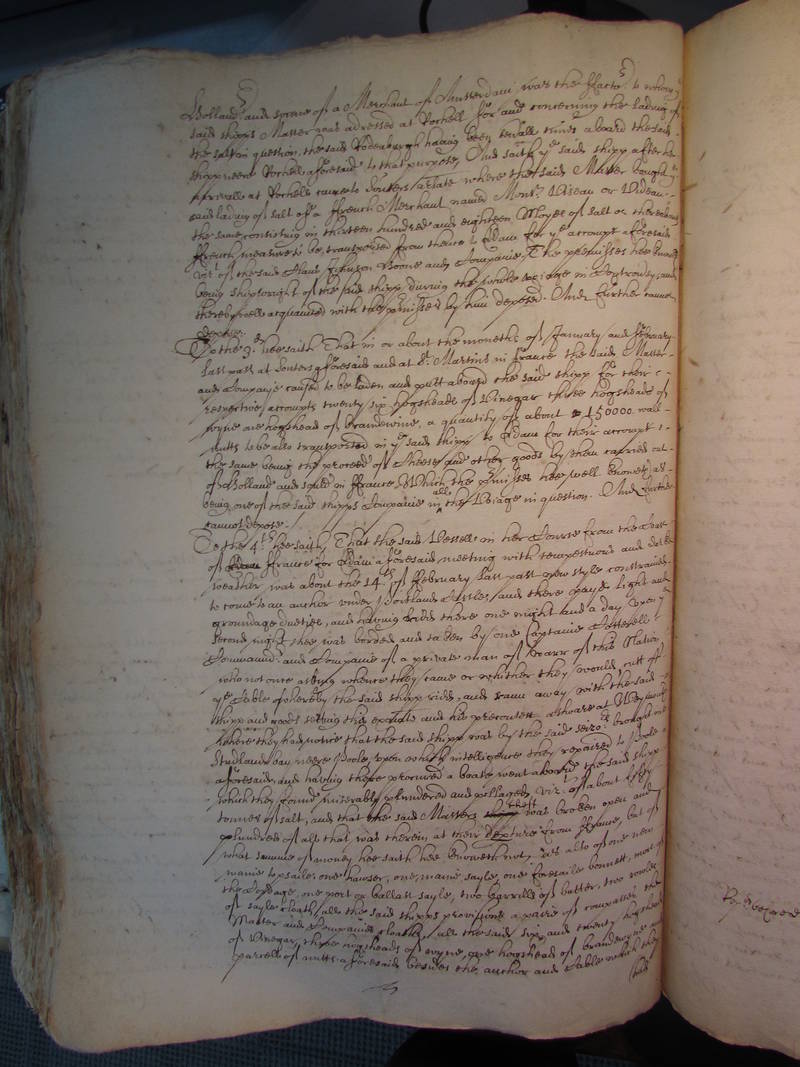 Holland and sonne of a Merchant of Amsterdam was the ffactor to whom ye
said shipps Master was adressed at Rochell for and concerning the lading of
the salt in question, the said Vodenburgh having been severall times aboard the said
shipp neere Rochell aforesaid to that purpose, And saith ye said shipp after her
arrivall at Rochell came to where the said Master bought ye
said lading of salt of a ffrench Merchant named Monsr. or
the same consisting in thirteen hundred and eighteen of salt or thereabouts
ffrench measure to be transported from thence to Adam for ye accompt aforesaid
vizt. of the said Hans Johnson Boone and Companie, The premisses hee knoweth
being shipwright of the said shipp during the whole voiage in Controversy, and
thereby well acquainted with the premisses by him deposed. And further cannot
depose.
To the 3d. hee saith That in or about the moneths of January and ffebruary
last past at aforesaid and at St. Martins in ffrance the said Master
and Companie caused to be laden and putt aboard the said shipp for their
respective accompts twenty six hogsheads of Vinegar three hogsheads of
wyne one hogshead of Brandewine, a quantity of about 150000 wall
nutts to be also transported in ye said shipp to Adam for their accompt
the same being the proceed of Cheese and other goods by them carried out
of Holland and sould in ffrance, Which the premisses hee well knoweth as
being one of the said shipps Companie in all the Voiage in question. And further
cannot depose.
To the 4th. hee saith, That the said Vessell in her Course from the Coast
of ffrance for Adam aforesaid meeting with tempestuous and
weather was about the 14th. of ffebruary last past new style constrained
to come to an anchor under Portland Castle, and there payd light and
groundage dueties, and having ridd there one night and a day upon ye
second night shee was borded and taken by one Captaine
Commandr. and Companie of a private man of Warr of this Nation
who not once asking whence they came or whither they would, cutt off
ye Cable whereby the said shipp ridd, and rann away with the said
shipp and goods setting this examinate and his precontest ashoare at Weymouth
where they had notice that the said shipp was by the said seizors brought into
Studland bay neere Poole, upon which intelligence they repaired to Poole
aforesaid, and having there procured a boate went aboard the said shipp
which they found miserably plundered and pillaged, vizt. of about fifty
tonnes of salt, and that the said Masters chest was broken open and
plundred of all that was therein at their depture from ffrance, but of
what summe of money hee saith hee knoweth not, as also of one new
maine topsaile, one hawser, one maine sayle, one foresaile bonnett, most of
the Cordage, one port or ballast sayle, two barrills of butter, two rowles
of sayle cloath, all the said shipps provisions a paire of compasses the
Master and Companies cloathes, all the said six and twenty hogsheads
of Vinegar, three hogsheads of wyne, one hogshead of brandewyne and
parcell of nutts aforesaid besides the anchor and Cable which they